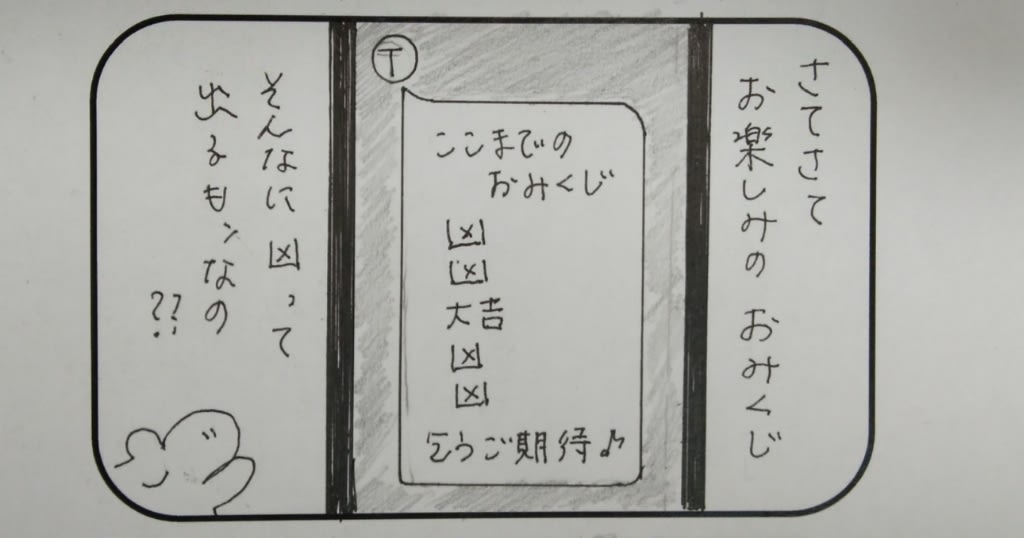 さてさて
お楽しみの おみくじ
〒
ここまでの
おみくじ
凶
凶
大吉
凶
凶
乞うご期待♪
そんなに 凶って
出るモンなの
??